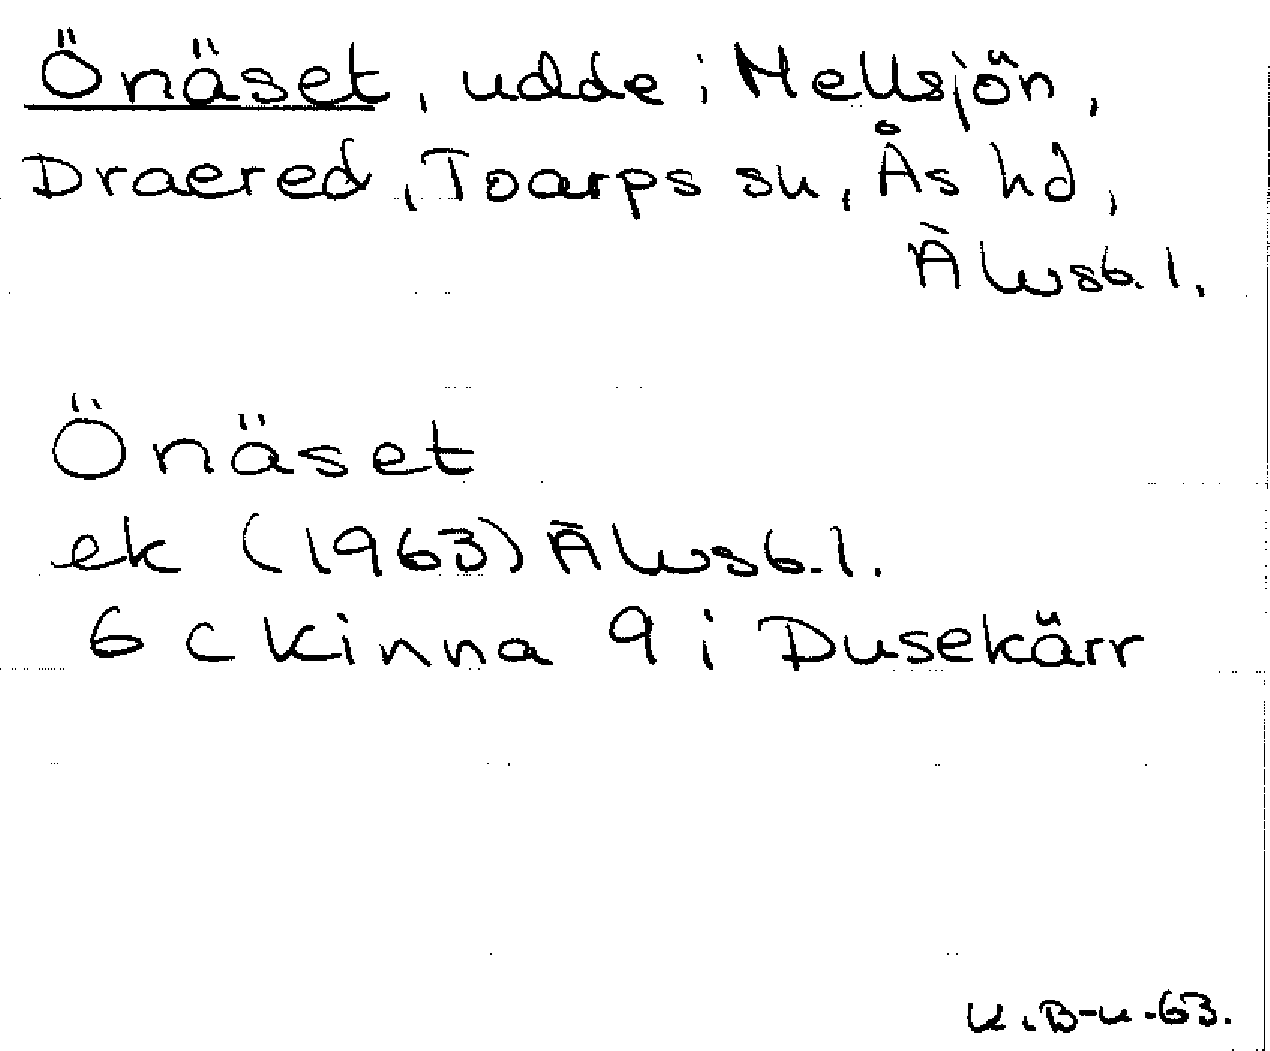 Önäset, udde i Mellsjön,
Draered, Toarps sn, Ås hd,
Älvsb. l.
Önäset
ek (1963) Älvsb. l.
6 c Kinna 9 i Dusekärr
K.B-n -63.